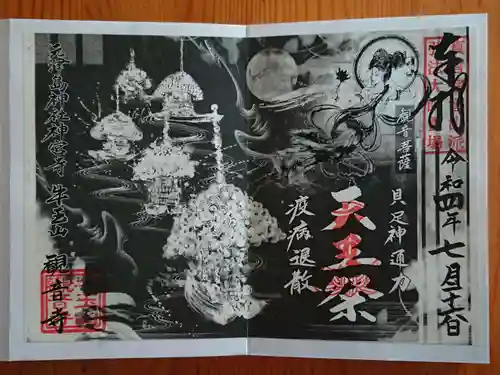 奉拝
令和四年七月十六日
観音菩薩
具足神通力
天王祭
疫病退散
元霧島神社神宮寺 牛王山 観音寺